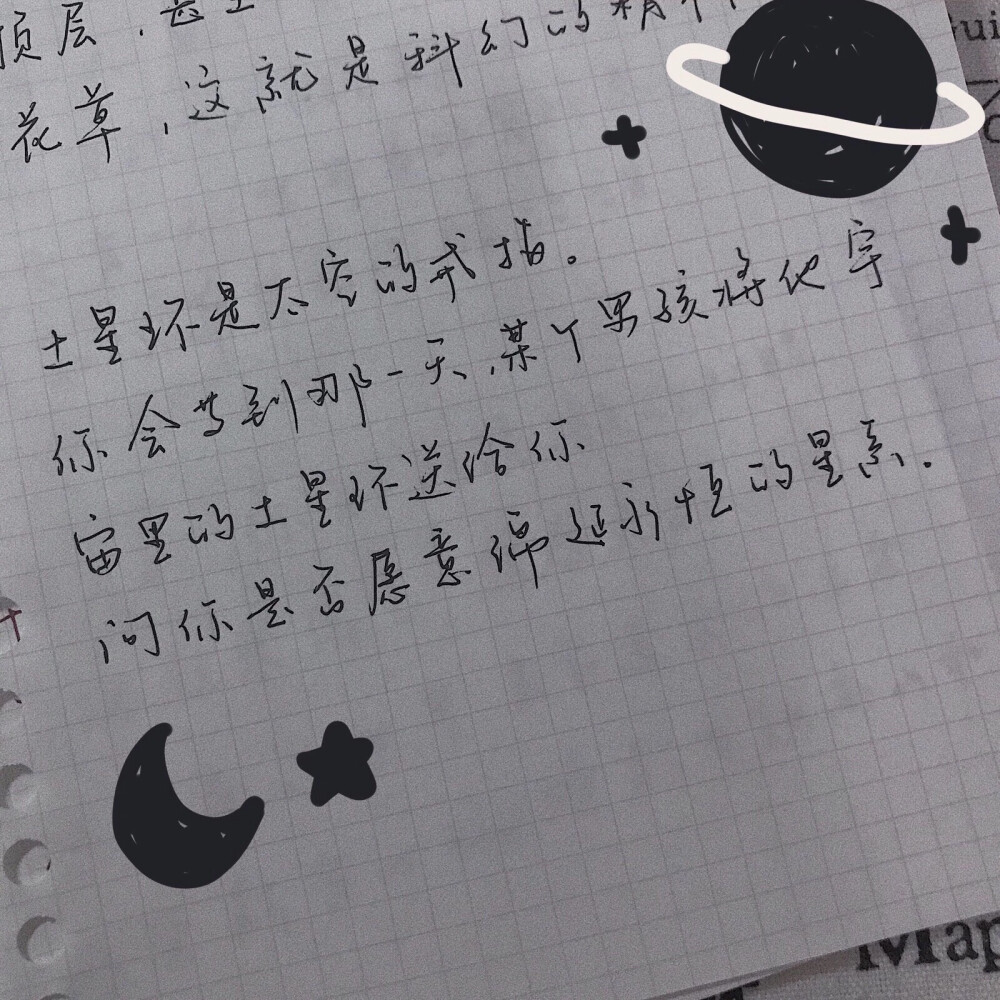 顶层,甚至
花草,这就是科幻的精神
土星环是太空的戒指。
你会等到那一天,某个男孩将他宇
宙里的土星环送给你
问你是否愿意绵延永恒的星系.
Map